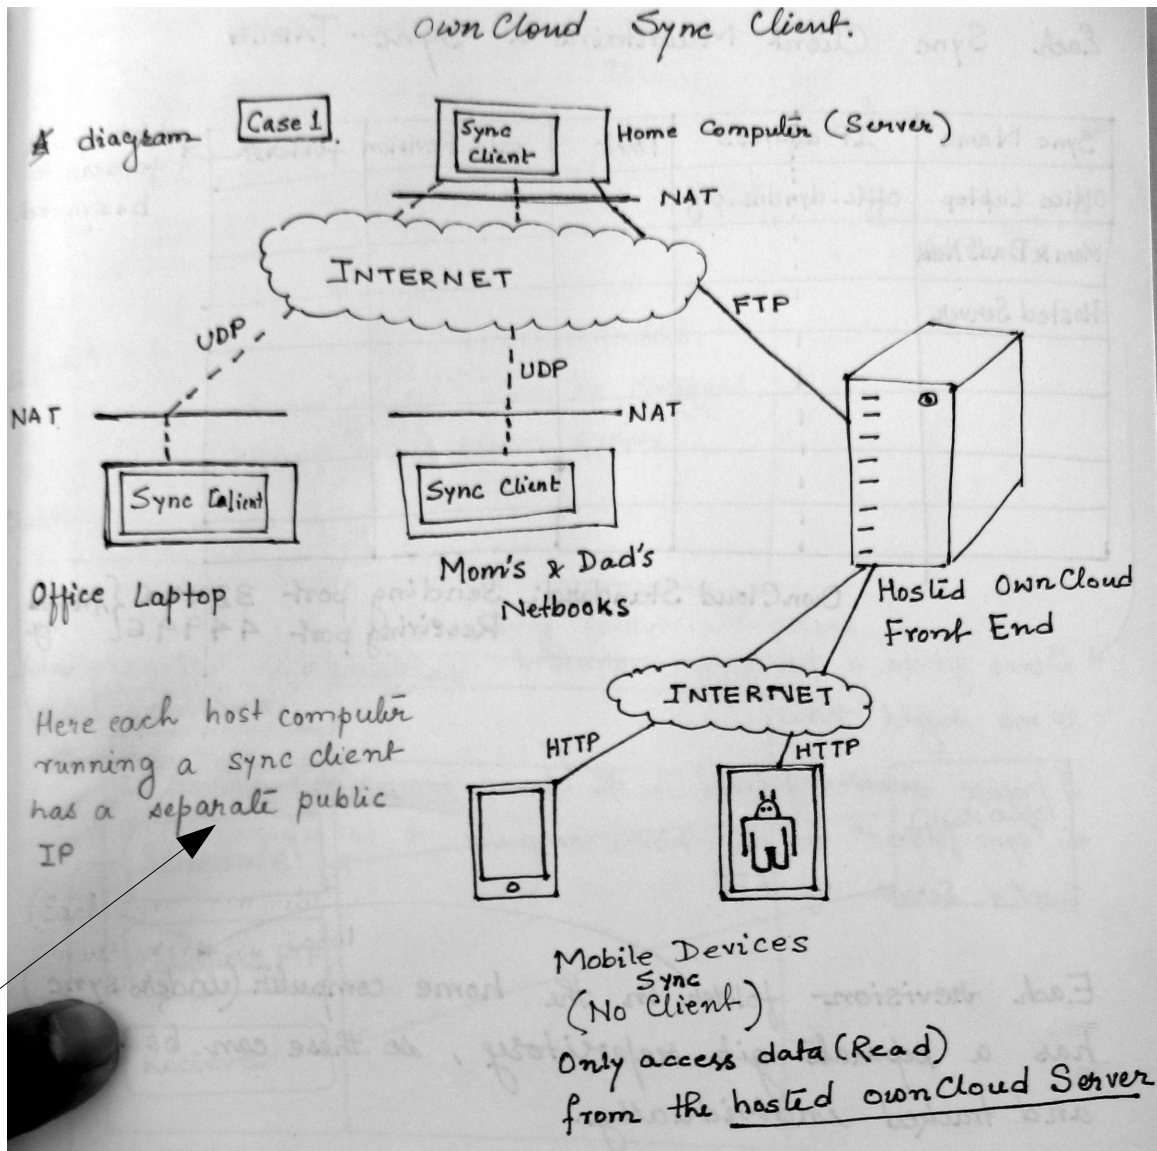 ownCloud Sync Client.
A diagram
Case 1
Sync Client
Home Computer (Server)
NAT
INTERNET
UDP
UDP
FTP
NAT
NAT
Sync Client
Sync Client
Office Laptop
Mom's & Dad's
Netbooks
Hosted OwnCloud
Front End
INTERNET
HTTP
HTTP
Here each host computer
running a sync client
has a separate public
IP
Mobile Devices
(No Sync Client)
Only access data (Read)
from the hosted ownCloud Server